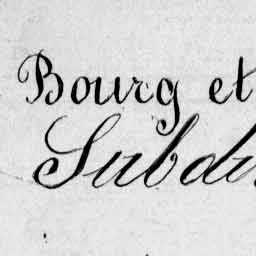 Bourg et
Subdi